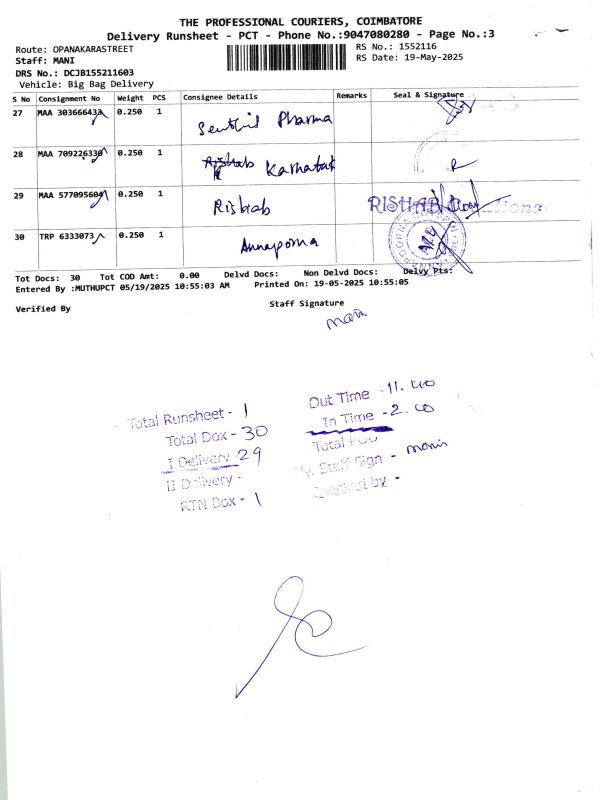 THE PROFESSIONAL COURIERS, COIMBATORE
Delivery Runsheet - PCT - Phone No.:9047080280 - Page No.:3
Route: OPANAKARASTREET
RS No.: 1552116
Staff: MANI
RS Date: 19-May-2025
DRS No.: DCJB155211603
Vehicle: Big Bag Delivery
S No Consignment No Weight PCS Consignee Details Remarks Seal & Signature
27 MAA 303666433 0.250 1 Senthil Pharma
28 MAA 709226330 0.250 1 Karnatak
29 MAA 577095604 0.250 1 Rishab RISHAB
30 TRP 6333073 0.250 1 Annaporna
Tot Docs: 30 Tot COD Amt: 0.00 Delvd Docs: Non Delvd Docs: Delvy Pts:
Entered By :MUTHUPCT 05/19/2025 10:55:03 AM Printed On: 19-05-2025 10:55:05
Verified By
Staff Signature
mani
Total Runsheet - 1
Out Time - 11.40
Total Dox - 30
In Time - 2.00
I Delivery 29
Total POD
II Delivery -
Staff Sign - mani
RTN Dox - 1
by -